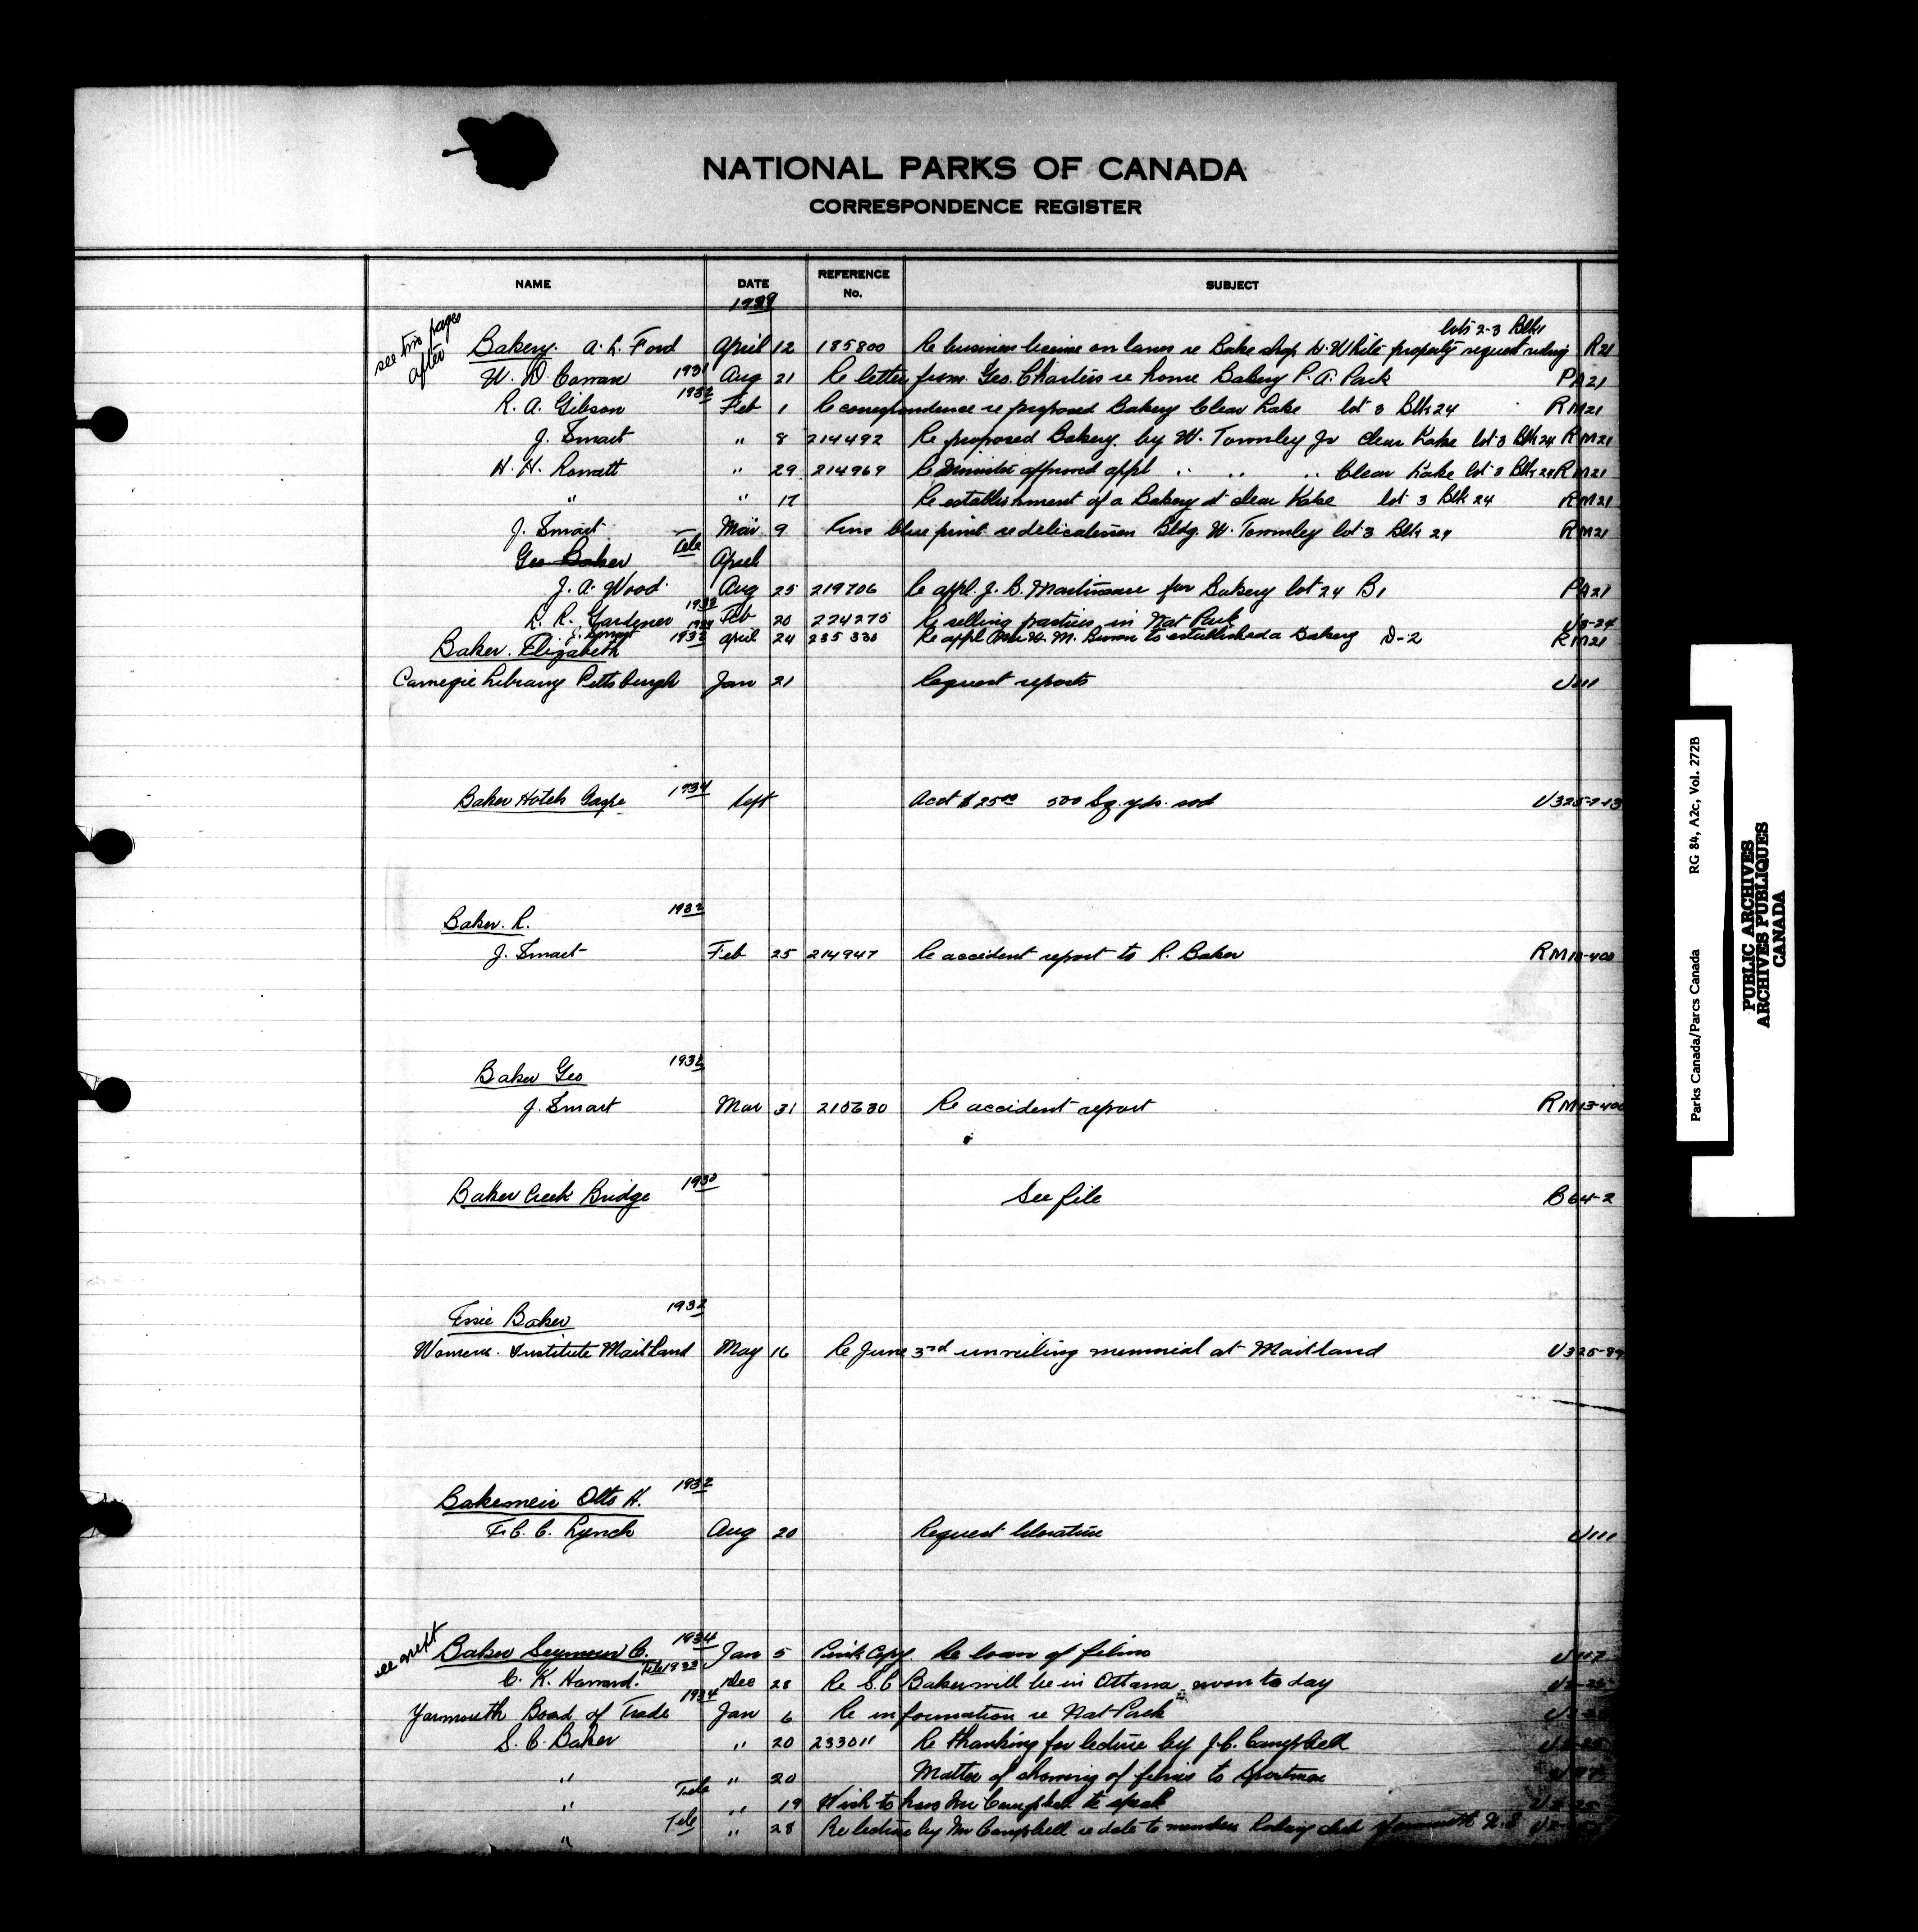 NATIONAL PARKS OF CANADA
CORRESPONDENCE REGISTER
NAME DATE REFERENCE No. SUBJECT
1929
see two pages after
lots 2-3 Blk 1
Bakery. A. L. Ford April 12 185800 Re business license on lanes re Bake shop White property request ruling R21
1931 Aug 21 Re letter from Geo. Charters re home Bakery P. A. Park PA21
R. A. Gibson 1932 Feb 1 Re correspondence re proposed Bakery Clear Lake lot 3 Blk 24 RM21
J. Smart " 8 214492 Re proposed Bakery by W. Townley Jr Clear Lake lot 3 Blk 24 RM21
H. H. Rowatt " 29 214969 Re Minister approved appl " " " Clear Lake lot 3 Blk 24 RM21
" " 17 Re establishment of a Bakery at Clear Lake lot 3 Blk 24 RM21
J. Smart Mar 9 blue print re delicatessen Bldg. W. Townley lot 3 Blk 24 RM21
Geo Baker Tele April
J. A. Wood Aug 25 219706 Re appl. J. B. for Bakery lot 24 B1 PA21
R. R. Gardener 1933 Feb 20 224275 Re selling pastries in Nat Park
J. Smart 1934 April 24 Re appl M. Brown to established a Bakery D-2 RM21
Baker. Elizabeth 1932
Carnegie Library Pittsburgh Jan 21 Request reports U111
Baker Hotels Gaspe 1934 Sept Acct $25.00 500 Sq. yds. sod
Baker. R. 1932
J. Smart Feb 25 214947 Re accident report to R. Baker
Baker Geo
J. Smart Mar 31 Re accident report
Baker Creek Bridge 1930 See file B64-2
Essie Baker 1932
Womens. Institute Maitland May 16 Re June 3rd unveiling memorial at Maitland
Bakemeir Otto H. 1932
F. C. C. Lynch Aug 20 Request literature U111
see next
Baker Seymour C. 1934 Jan 5 Pink Copy. Re loan of films
C. K. Howard. Tele 1933 Dec 28 Re S. C Baker will be in Ottawa noon to day
Yarmouth Board of Trade 1934 Jan 6 Re information re Nat Park
S. C. Baker " 20 233011 Re thanking for lecture by J. C. Campbell
" " 20 Matter of showing of films to
" Tele " 19 Wish to have Mr Campbell to speak
" Tele " 28 Re lecture by Mr Campbell re date to members N. S
RG 84, A2c, Vol. 272B
Parks Canada/Parcs Canada
PUBLIC ARCHIVES
ARCHIVES PUBLIQUES
CANADA